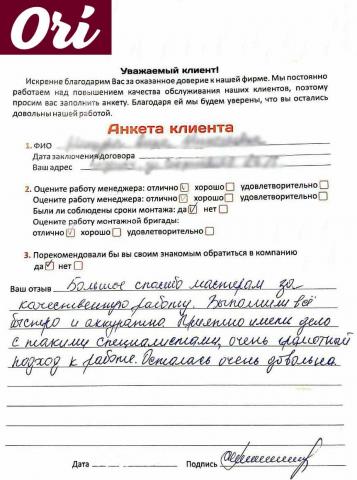 Ori
Уважаемый клиент!
Искренне благодарим Вас за оказанное доверие к нашей фирме. Мы постоянно
работаем над повышением качества обслуживания наших клиентов, поэтому
просим вас заполнить анкету. Благодаря ей мы будем уверены, что вы остались
довольны нашей работой.
Анкета клиента
1. ФИО
Дата заключения договора
Ваш адрес
2. Оцените работу менеджера: отлично хорошо удовлетворительно
Оцените работу менеджера: отлично хорошо удовлетворительно
Были ли соблюдены сроки монтажа: да нет
Оцените работу монтажной бригады:
отлично хорошо удовлетворительно
3. Порекомендовали бы вы своим знакомым обратиться в компанию
да нет
Ваш отзыв Большое спасибо мастерам за
качественную работу. Выполнили всё
быстро и аккуратно. Приятно иметь дело
с такими специалистами, очень грамотный
подход к работе. Осталась очень довольна.
Дата Подпись